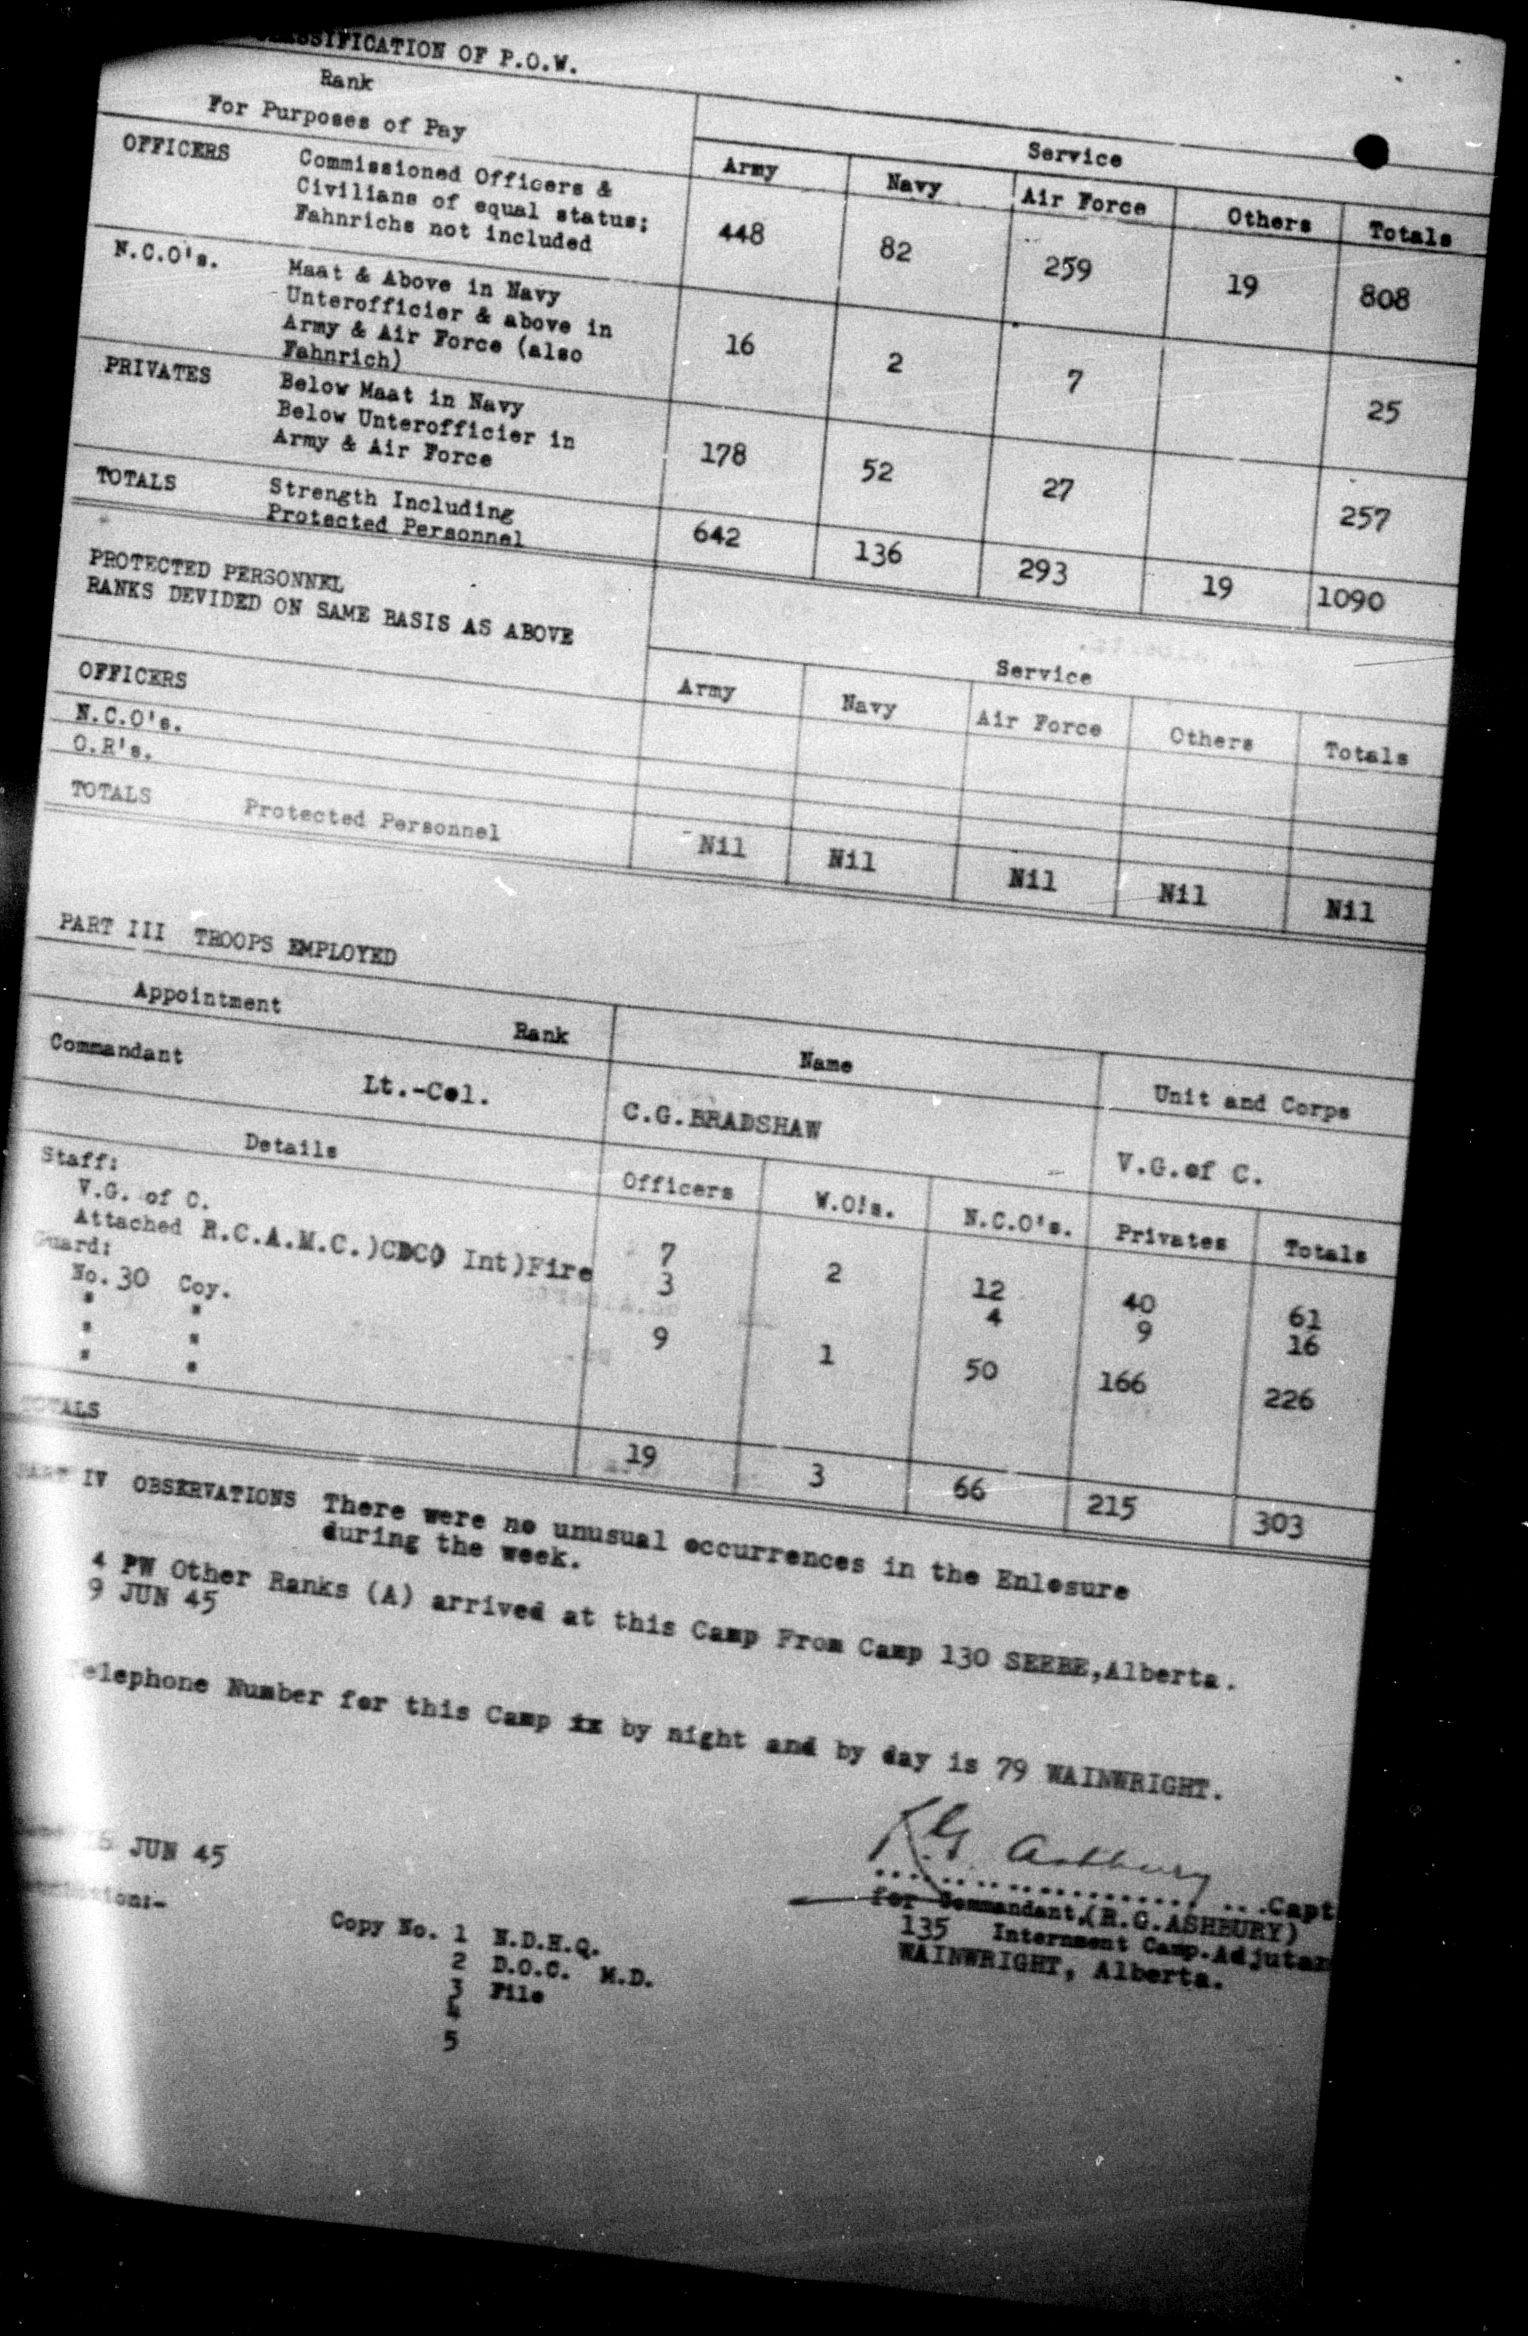 CLASSIFICATION OF P.O.W.
Rank
For Purposes of Pay
Service
Army Navy Air Force Others Totals
OFFICERS Commissioned Officers &
Civilians of equal status;
Fahnrichs not included
448 82 259 19 808
N.C.O's. Maat & Above in Navy
Unterofficier & above in
Army & Air Force (also
Fahnrich)
16 2 7 25
PRIVATES Below Maat in Navy
Below Unterofficier in
Army & Air Force
178 52 27 257
TOTALS Strength Including
Protected Personnel
642 136 293 19 1090
PROTECTED PERSONNEL
RANKS DEVIDED ON SAME BASIS AS ABOVE
Service
Army Navy Air Force Others Totals
OFFICERS
N.C.O's.
O.R's.
TOTALS Protected Personnel Nil Nil Nil Nil Nil
PART III TROOPS EMPLOYED
Appointment Rank Name Unit and Corps
Commandant Lt.-Col. C.G.BRADSHAW V.G.of C.
Details Officers W.O!s. N.C.O's. Privates Totals
Staff:
V.G. of C. 7 2 12 40 61
Attached R.C.A.M.C.)CDC) Int)Fire 3 4 9 16
Guard:
No. 30 Coy. 9 1 50 166 226
" "
" "
" "
TOTALS 19 3 66 215 303
PART IV OBSERVATIONS There were no unusual occurrences in the Enlosure
during the week.
4 PW Other Ranks (A) arrived at this Camp From Camp 130 SEEBE,Alberta.
9 JUN 45
Telephone Number for this Camp ix by night and by day is 79 WAINWRIGHT.
R.G. Ashbury
JUN 45
....................Capt
for Commandant,(R.G.ASHBURY)
135 Internment Camp.Adjutan
WAINWRIGHT, Alberta.
Copy No. 1 N.D.H.Q.
2 D.O.C. M.D.
3 File
4
5